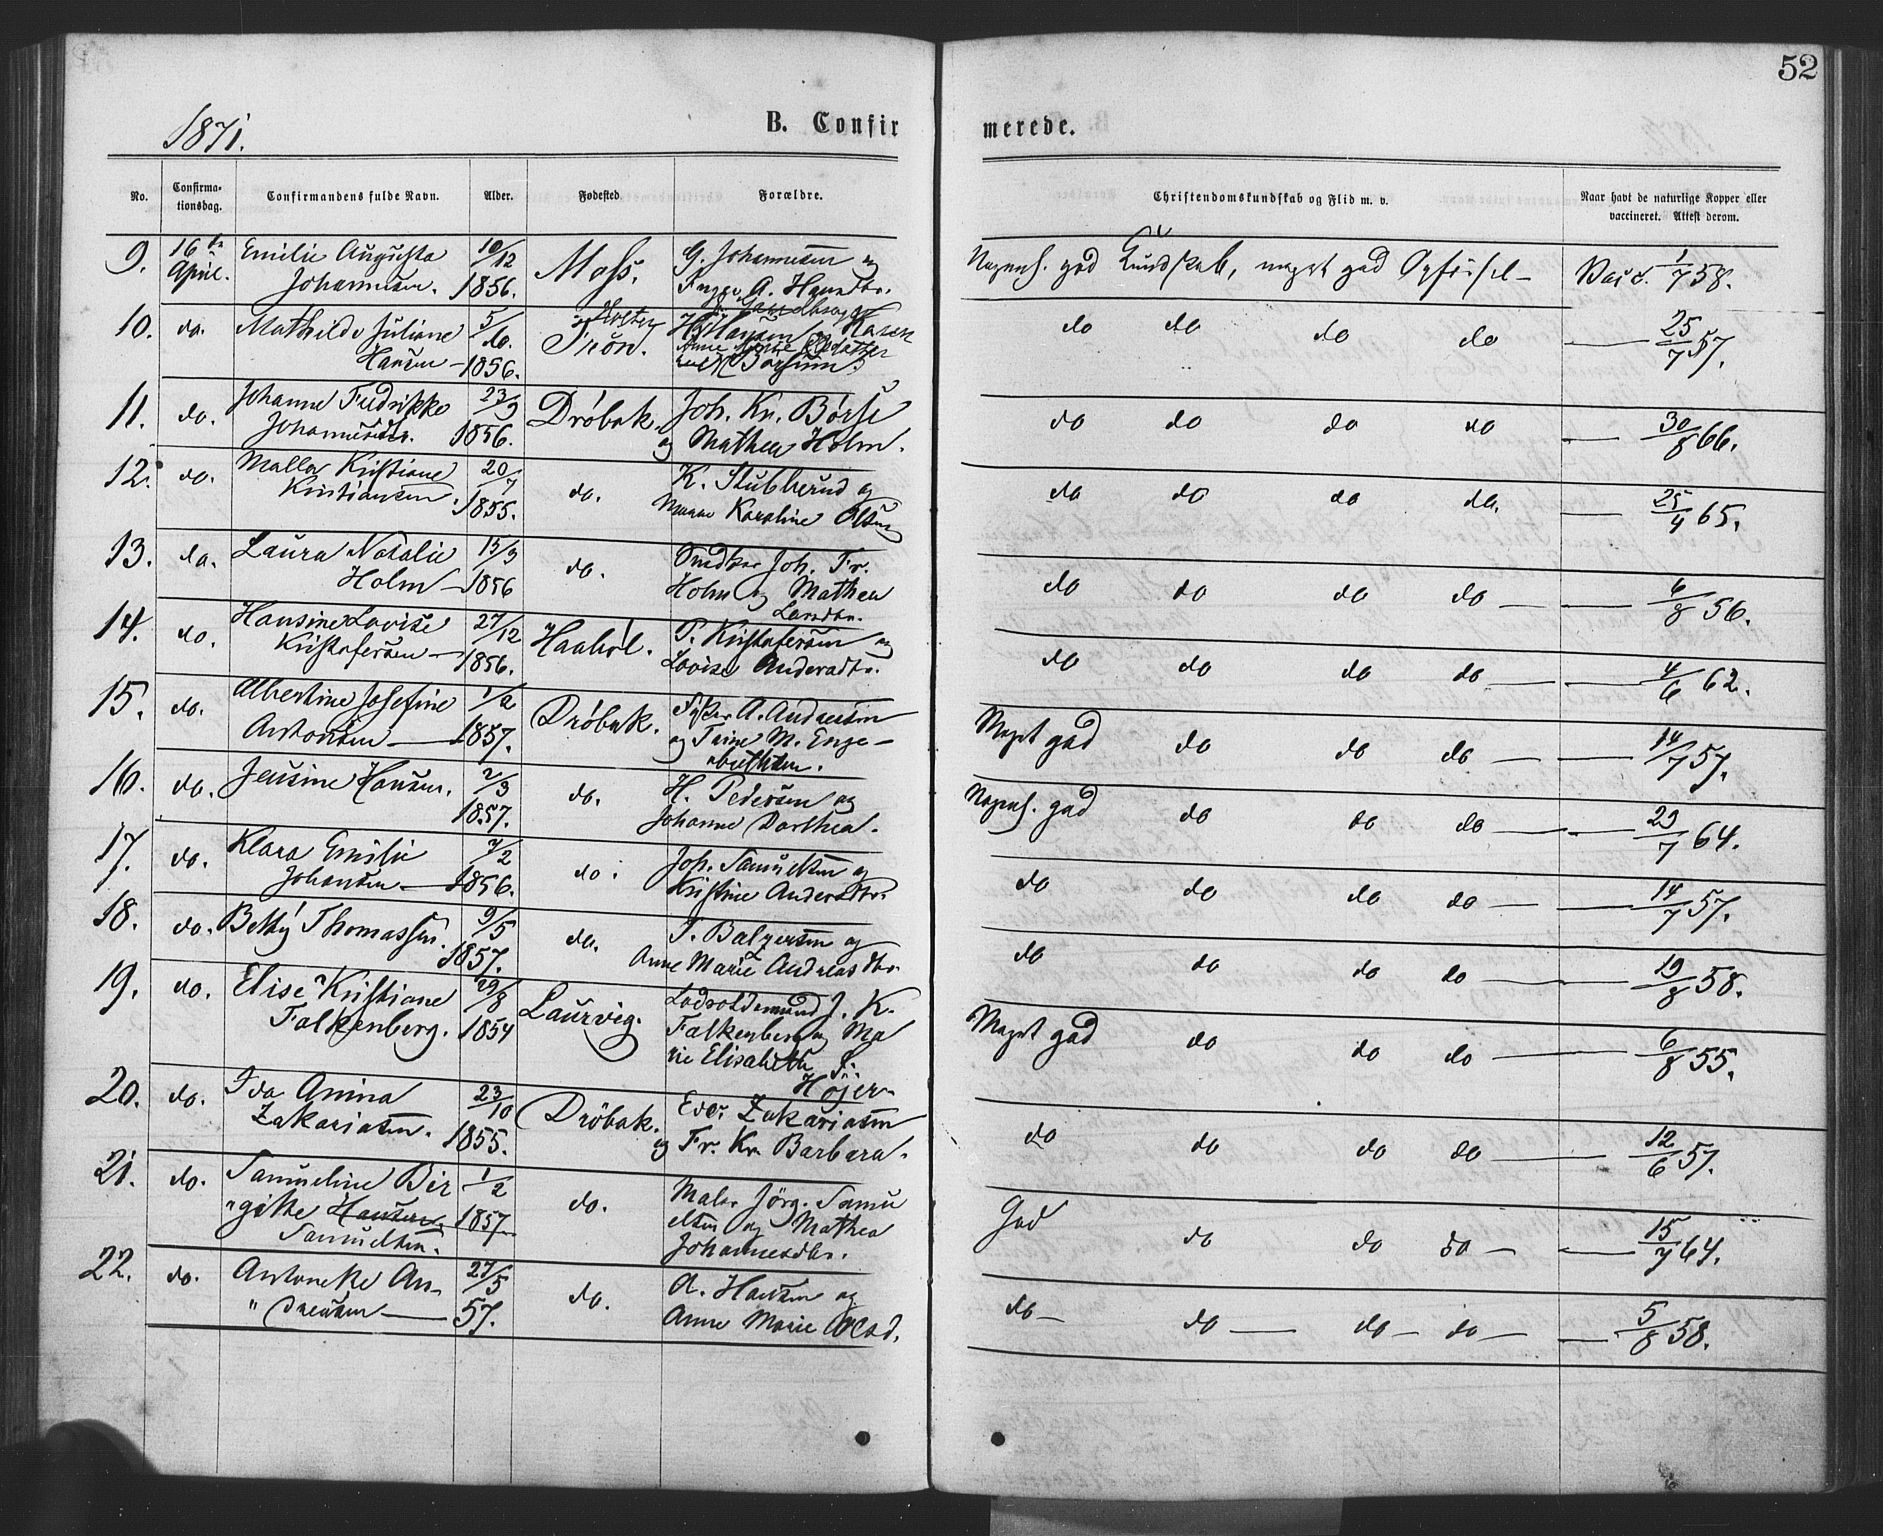 52
1871.
B. Confir
merede.
No.
Confirma-
tionsdag.
Confirmandens fulde Navn.
Alder.
Fødested
Forældre.
Christendomskundskab og Flid m. v.
Naar havt de naturlige Kopper eller
vaccineret. Attest derom.
9. 16de Emilie Augusta 10/12 G. Johannesen og
April. Johannesen. 1856. Moss. Inger A. Hansdtr.
god Kundskab, meget god Vacc. 1/7 58.
10. do. Mathilde Juliane 5/6 Hansen Karen
Hansen 1856.
do do do do 25/7 57.
11. do. Johanne Fredrikke 23/9 Drøbak. Joh. Kr. Børse
Johannesdtr. 1856. og Mathea Holm.
do do do do 30/8 66.
12. do. Malla Kristiane 20/7 do. K. Stubberud og
Kristiansen. 1855. Karoline Olsen
do do do do. 25/4 65.
13. do. Laura Natalie 15/9 do. Joh. Fr.
Holm 1856 Holm og Mathea
Larsdtr.
do do do do 6/8 56.
14. do. Hansine Lovise 27/12 Haabøl. P. Kristofersen og
Kristofersen 1856. Lovise Andersdtr.
do do do do 4/6 62.
15. do. Albertine Josefine 1/2 Drøbak. A. Andersen
Antonsen 1857. og Trine M. Enge-
brethsen.
Meget god do do do 14/7 57.
16. do. Jensine Hansen. 2/3 do. H. Pedersen og
1857. Johanne Dorthea.
god do do do 29/7 64.
17. do. Klara Emilie 7/2 do. Joh. Samuelsen og
Johansen 1856. Kristine Andersdtr.
do do do do 14/7 57.
18. do. Betty Thomassen. 9/5 do. T. Balzersen og
1857. Anne Marie Andreasdtr.
do do do do 19/8 58.
19. do. Elise Kristiane 29/8 Laurvig. J. K.
Falkenberg. 1854 Falkenberg og Ma
rie Elisabeth F.
Højer
Meget god do do do 6/8 55.
20. do. Ida Amina 23/10 Drøbak. Edv. Zakariasen
Zakariasen. 1855. og Fr. Kr. Barbara.
do do do do 12/6 57.
21. do. Samueline Bir 1/2 do. Maler Jörg. Samu
"gitte Hansen 1857. elsen og Mathea
Samuelsen. Johannesdtr.
God do do do 15/7 64.
22. do. Antonette An- 27/5 do. A. Hansen og
" dreasen 57. Anne Marie Olsd.
do do do do 5/8 58.